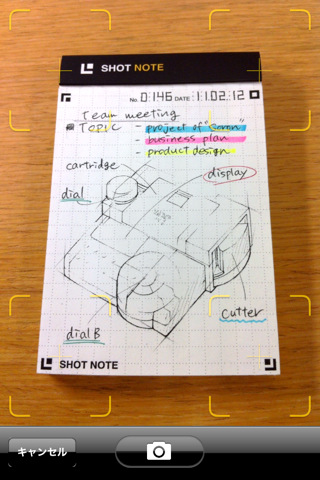 SHOT NOTE
No. 0:146 DATE : 11.02.12
Team meeting
TOPIC - project of "
- business plan
- product design
cartridge
display
dial
cutter
dial B
SHOT NOTE
キャンセル